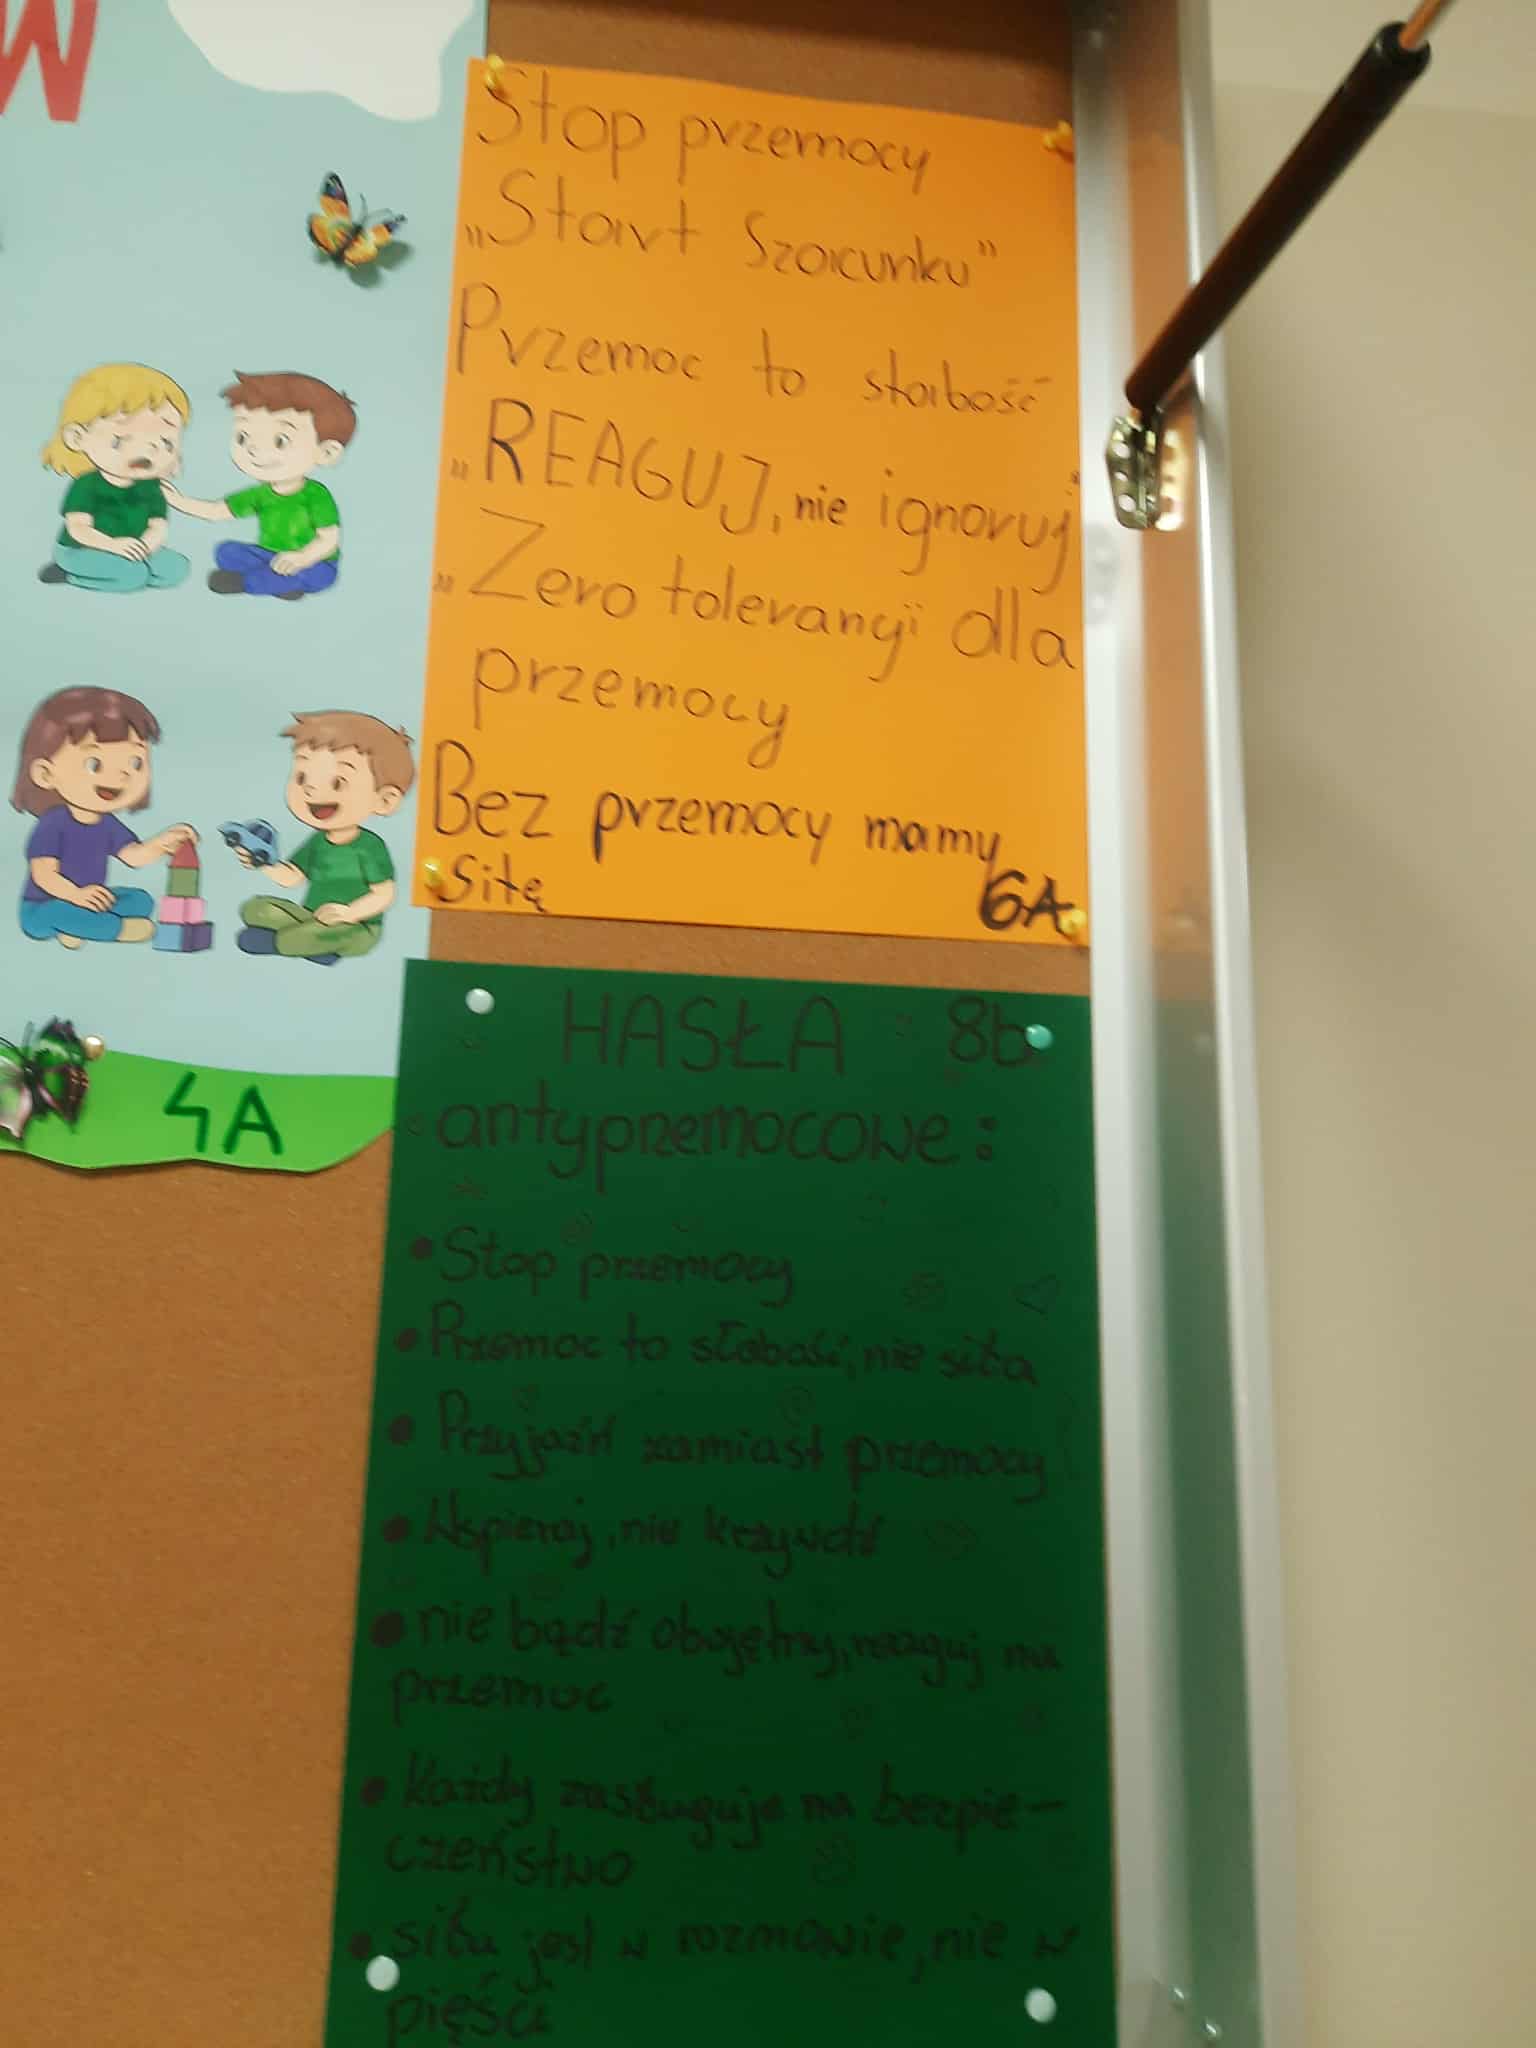 W
Stop przemocy
„Start Szacunku”
Przemoc to słabość
„REAGUJ, nie ignoruj”
„Zero tolerancji dla
przemocy
Bez przemocy mamy
Siłę
6A
4A
HASŁA 8b
antyprzemocowe:
• Stop przemocy
• Przemoc to słabość, nie siła
• Przyjaźń zamiast przemocy
• Wspieraj, nie krzywdź
• nie bądź obojętny, reaguj na
przemoc
• Każdy zasługuje na bezpie-
czeństwo
• siła jest w rozmowie, nie w
pięści